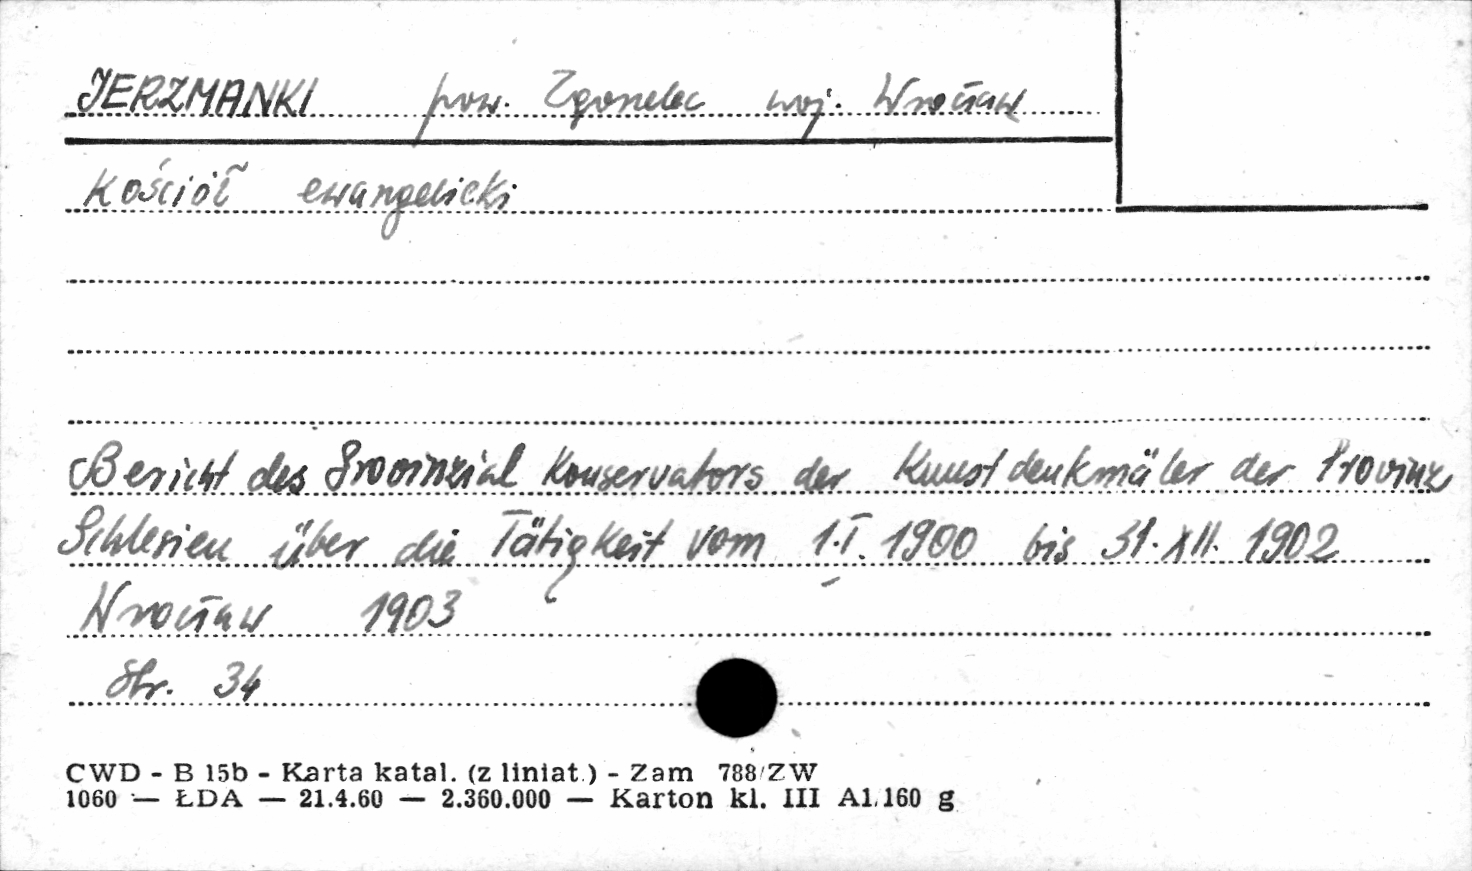 JERZMANKI pow. Zgorzelec woj. Wrocław
Kościół ewangelicki
Bericht des Provinzial Konservators der Kunstdenkmäler der Provinz
Schlesien über die Tätigkeit vom 1.I. 1900 bis 31.XII. 1902
Wrocław 1903
Str. 34
CWD - B 15b - Karta katal. (z liniat.) - Zam 788/ZW
1060 — ŁDA — 21.4.60 — 2.360.000 — Karton kl. III A1, 160 g